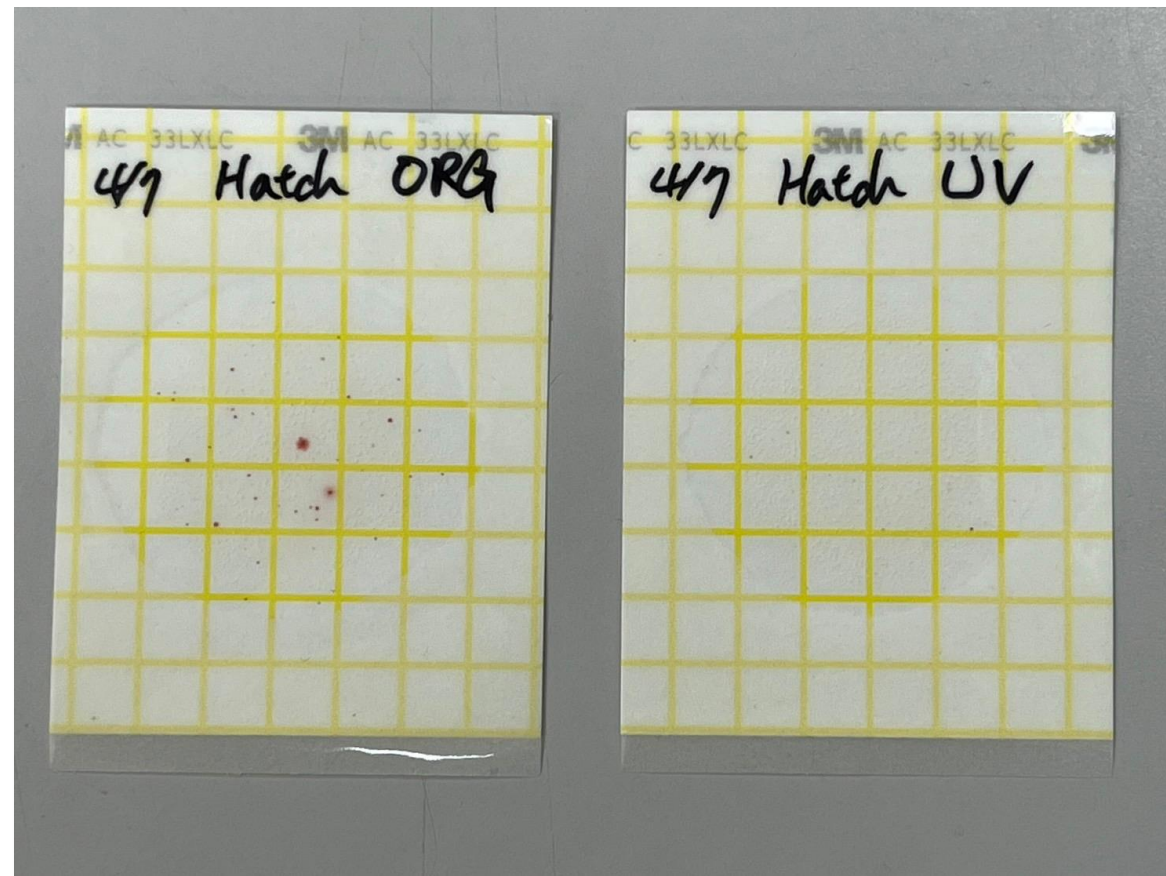 3M AC 33LXLC 3M AC 33LXLC
4/7 Hatch ORG
C 33LXLC 3M AC 33LXLC 3M
4/7 Hatch UV